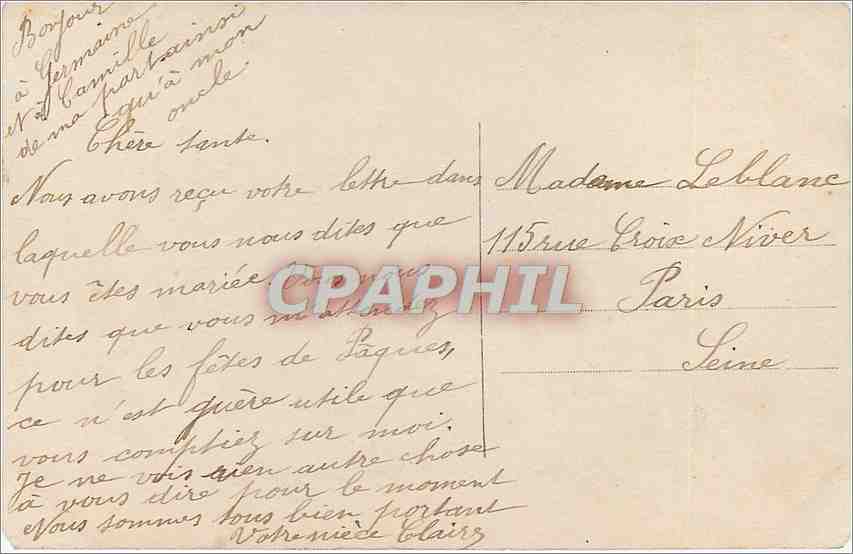 Bonjour
à Germaine
et à Camille
de ma part ainsi
qu'à mon
oncle.
Chère tante.
Nous avons reçu votre lettre dans
laquelle vous nous dites que
vous êtes mariée. Vous nous
dites que vous m'attendez
pour les fêtes de Pâques,
ce n'est guère utile que
vous comptiez sur moi.
Je ne vois rien autre chose
à vous dire pour le moment
Nous sommes tous bien portant
Votre nièce Claire
Madame Leblanc
115 rue Croix Niver
Paris
Seine
CPAPHIL